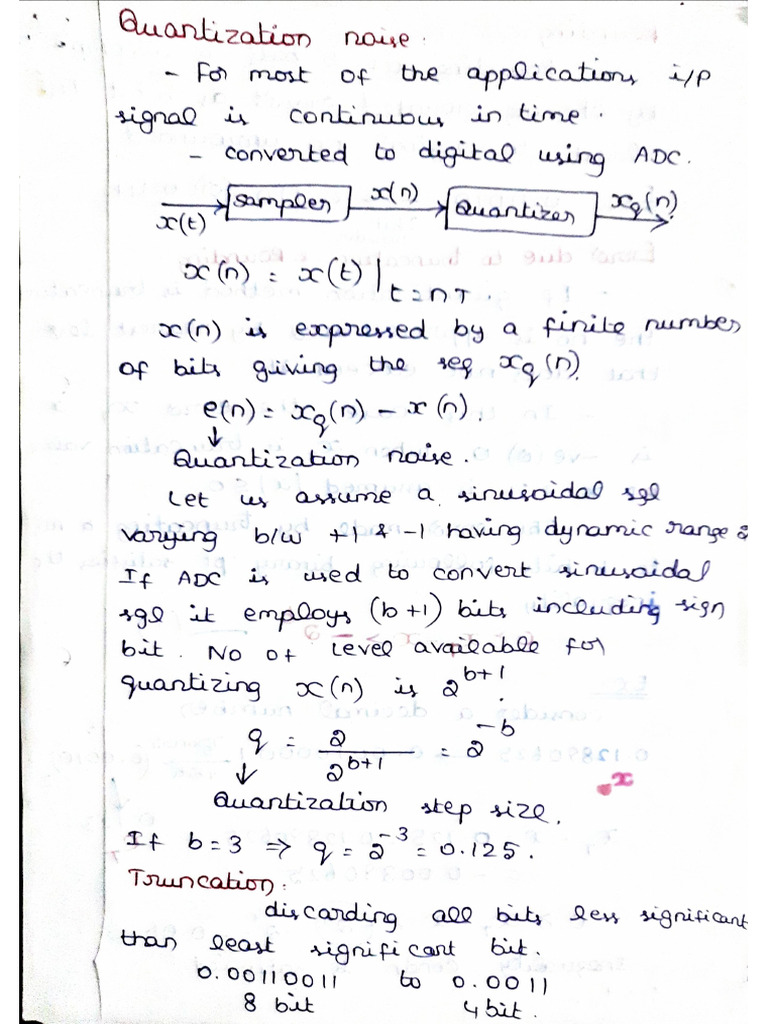 Quantization noise.
- For most of the applications, i/p
signal is continuous in time.
- converted to digital using ADC.
x(t) sampler x(n) Quantizer xq(n)
x(n) = x(t) | t = nT.
x(n) is expressed by a finite number
of bits giving the seq xq(n).
e(n) = xq(n) - x(n).
↓
Quantization noise.
Let us assume a sinusoidal sgl
varying b/w +1 & -1 having dynamic range 2
If ADC is used to convert sinusoidal
sgl it employs (b+1) bits including sign
bit. No of Level available for
quantizing x(n) is 2^(b+1).
q = 2 / 2^(b+1) = 2^-b
↓
Quantization step size.
If b = 3 ⇒ q = 2^-3 = 0.125.
Truncation:
discarding all bits less significant
than least significant bit.
0.00110011 to 0.0011
8 bit 4 bit.